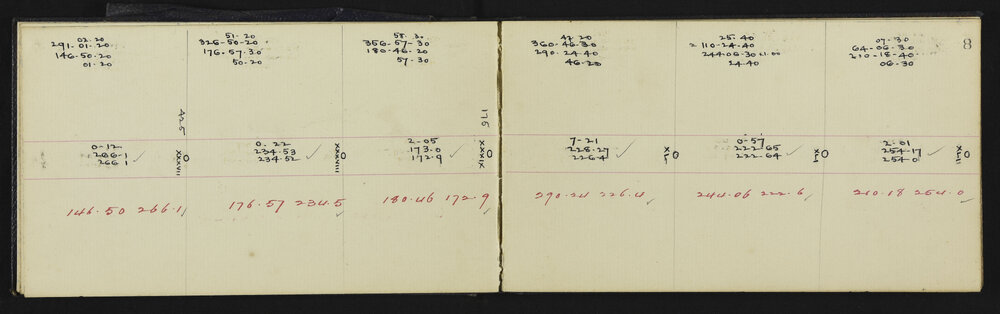 02.20
291-01-20
146-50-20
01-20
425
0-12
266-1
266 1
XXXVII
146.50 266.1
51.20
326-50-20
176-57.30
50-20
0.22
234.53
234.52
XXXVIII
176.57 234.5
58.30
356-57-30
180-46-20
57-30
175
2-05
173.0
172.9
XXXIX
180.46 172.9
42.20
360-46-30
290.24.40
46-20
7-21
228.27
226.4
XL
290.24 226.4
25.40
110-24-40
244.06.30
24.40
0-57
222.65
222.64
XLI
244.06 222.6
07.30
64-06.30
210-18-40
06.30
2.01
254.17
254.0
XLII
210.18 254.0
8